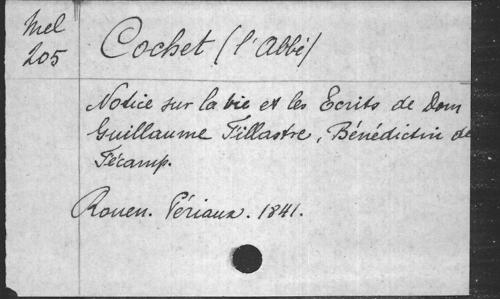 Mel
205
Cochet (l'Abbé)
Notice sur la vie et les Ecrits de Dom
Guillaume Fillastre, Bénédictin de
Fécamp.
Rouen. Périaux. 1841.